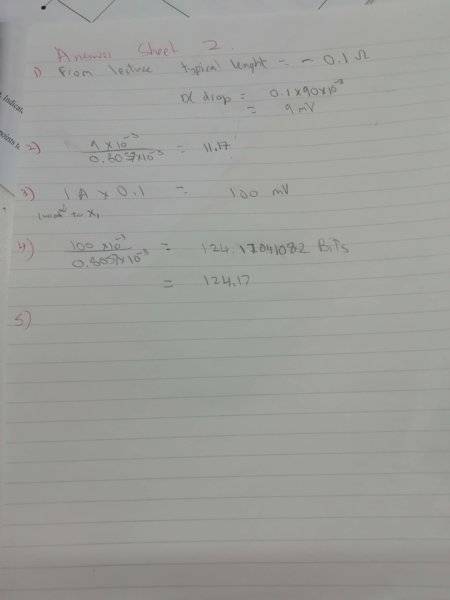 Indicat,
points is
Answer Sheet 2.
1) From lecture typical lenght = ~ 0.1 Ω
DC drop = 0.1 x 90 x 10⁻³
= 9 mV
2) 9 x 10⁻³ / 0.8057 x 10⁻³ = 11.17
3) 1 A x 0.1 = 100 mV
to X₁
4) 100 x 10⁻³ / 0.8057 x 10⁻³ = 124.17041082 Bits
= 124.17
5)